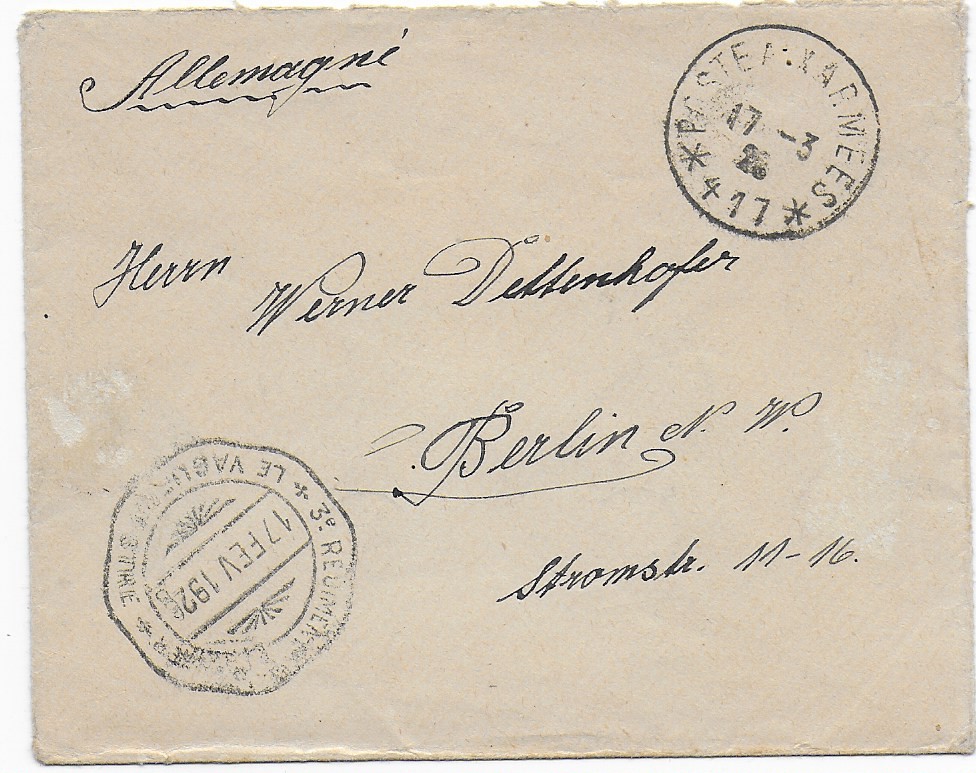 Allemagne
POSTE AUX ARMEES
17 -3
26
* 417 *
Herrn
Werner Dettenhofer
Berlin N. W.
Stromstr. 11-16.
* 3e REGIMENT
* LE VAGUEMESTRE *
17 FEV 1926